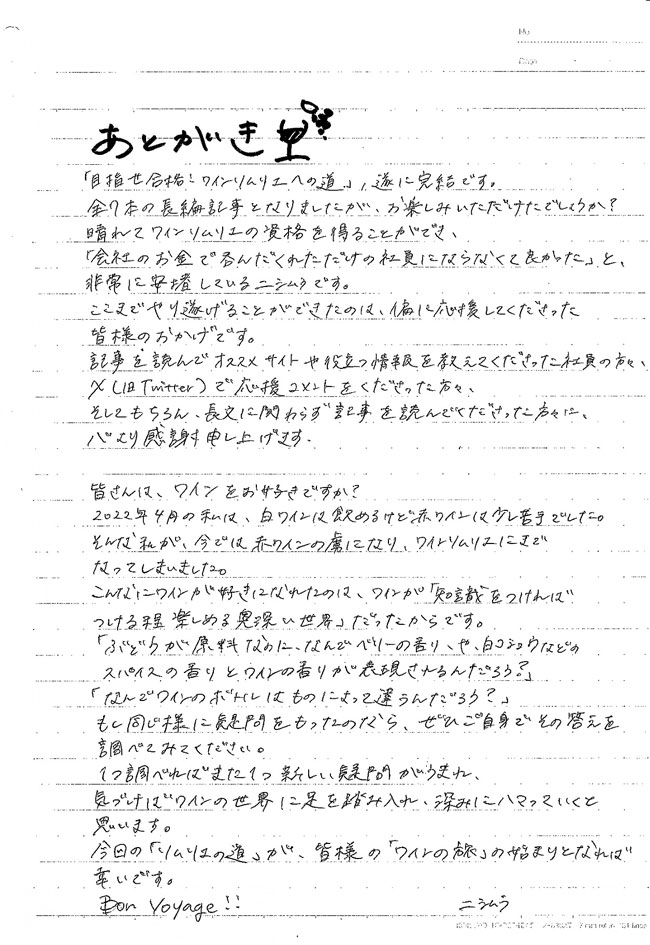 No.
Date
あとがき
「目指せ合格！ワインソムリエへの道」、遂に完結です。
全7本の長編記事となりましたが、お楽しみいただけたでしょうか？
晴れてワインソムリエの資格を得ることができ、
「会社のお金で呑んだくれただけの社員にならなくて良かった」と、
非常に安堵しているニシムラです。
ここまでやり遂げることができたのは、偏に応援してくださった
皆様のおかげです。
記事を読んでオススメサイトや役立つ情報を教えてくださった社員の方々、
X(旧Twitter)で応援コメントをくださった方々、
そしてもちろん、長文に関わらず記事を読んでくださった方々に、
心より感謝申し上げます。
皆さんは、ワインをお好きですか？
2022年4月の私は、白ワインは飲めるけど赤ワインは少し苦手でした。
そんな私が、今では赤ワインの虜になり、ワインソムリエにまで
なってしまいました。
こんなにワインが好きになれたのは、ワインが「知識をつければ
つける程楽しめる奥深い世界」だったからです。
「ぶどうが原料なのに、なんでベリーの香り、や、白コショウなどの
スパイスの香りとワインの香りが表現されるんだろう？」
「なんでワインのボトルはものによって違うんだろう？」
もし同じ様に疑問をもったのなら、ぜひご自身でその答えを
調べてみてください。
1つ調べればまた1つ新しい疑問がうまれ、
気づけばワインの世界に足を踏み入れ、深みにハマっていくと
思います。
今回の「ソムリエの道」が、皆様の「ワインの旅」の始まりとなれば
幸いです。
Bon Voyage!!
ニシムラ